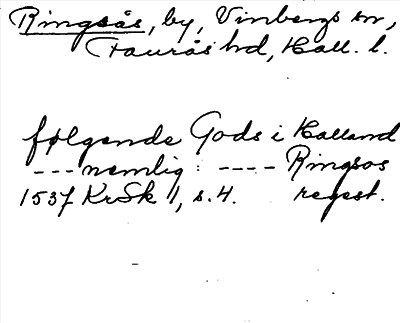 Ringsås, by, Vinbergs sn,
Faurås hd, Hall. l.
følgende Gods i Halland
--- nemlig: ---- Ringsos
1537 KrSk 1, s. 4. regest.